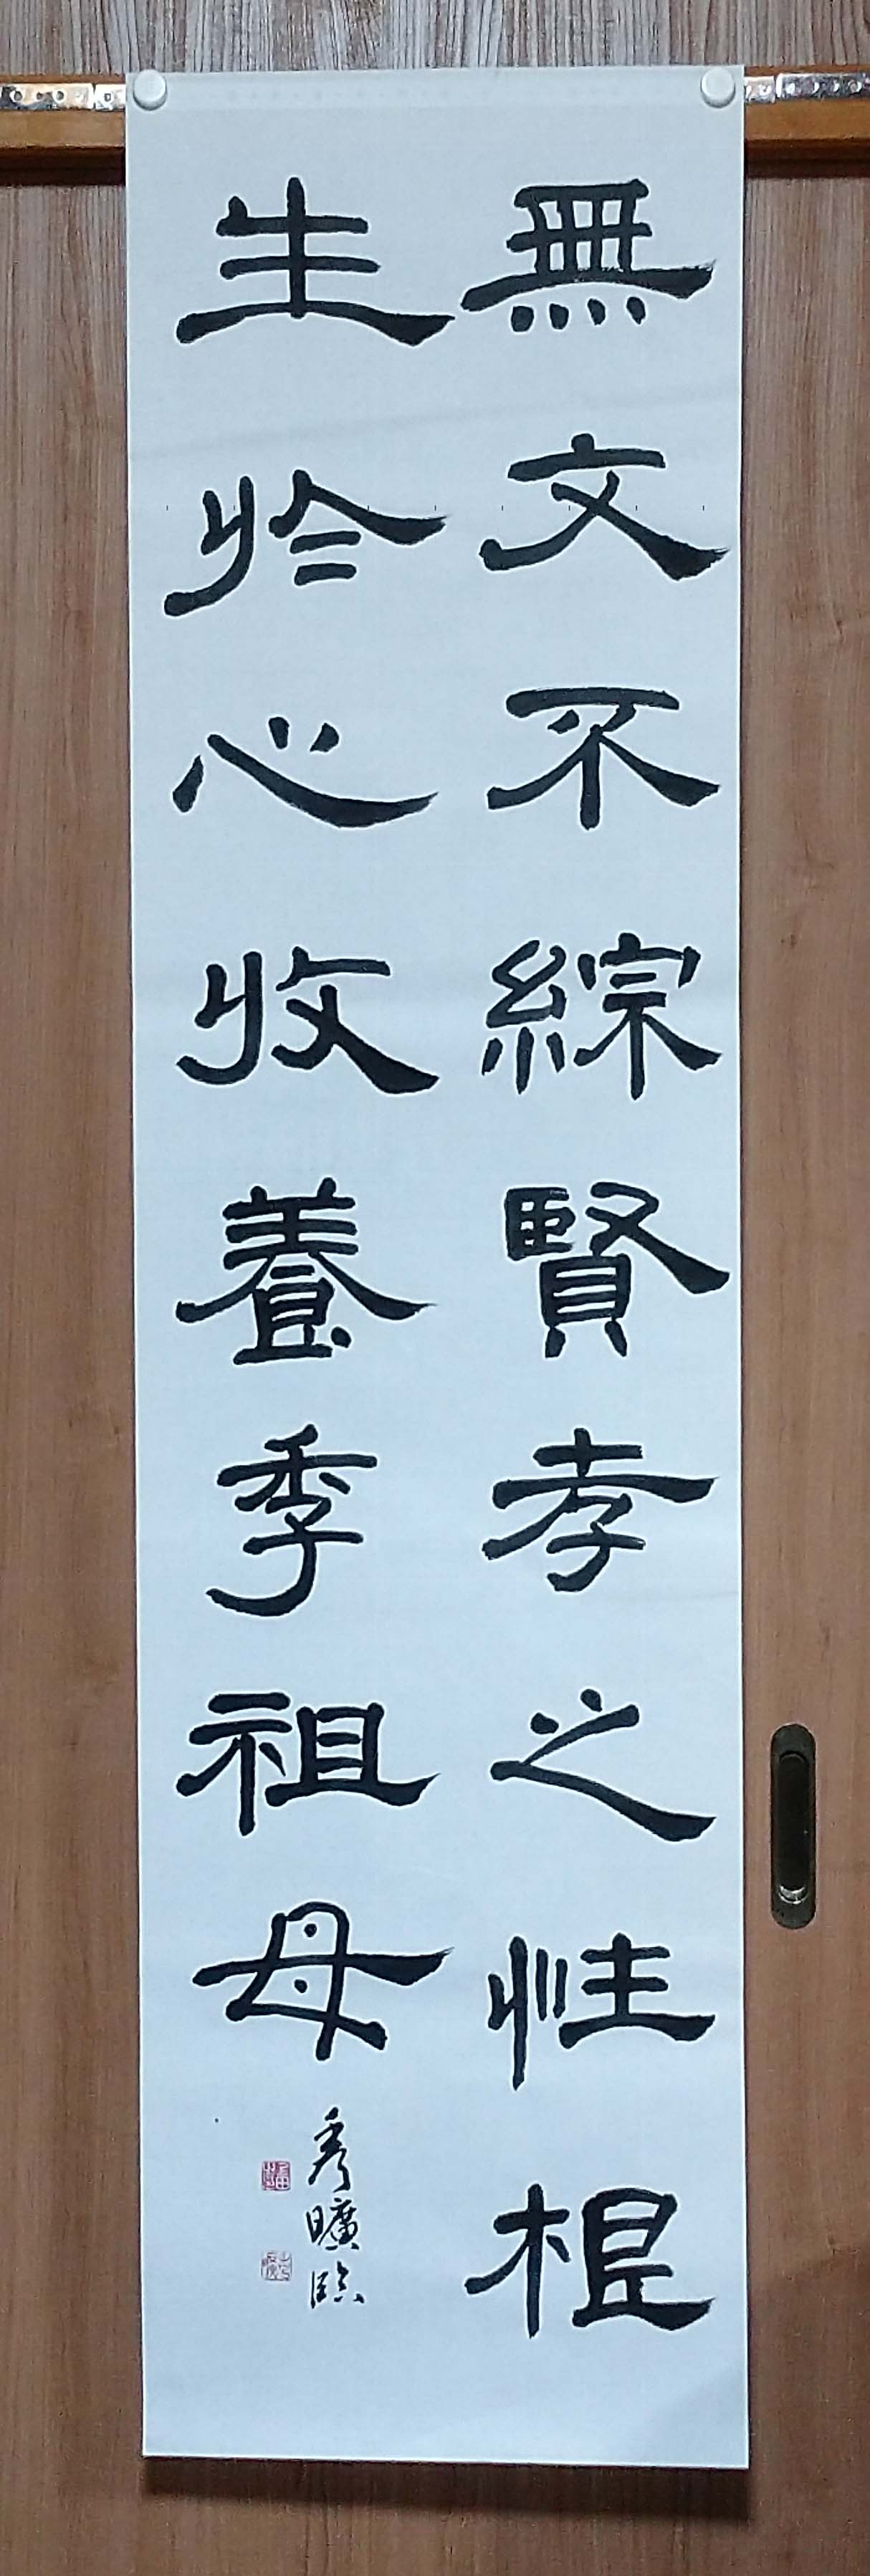 無文不綜賢孝之性根
生於心收養季祖母
秀曠臨